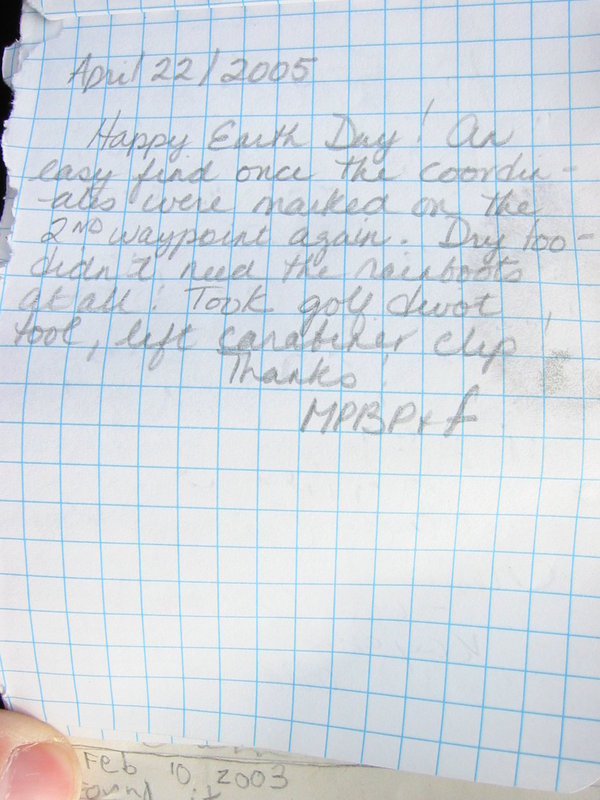 April 22/2005
Happy Earth Day! An
easy find once the coordin-
-ates were marked on the
2ND waypoint again. Dry too-
didn't need the rainboots
at all! Took golf divot
tool, left carabiner clip
Thanks!
MPBP+f
Feb 10 2003
found it